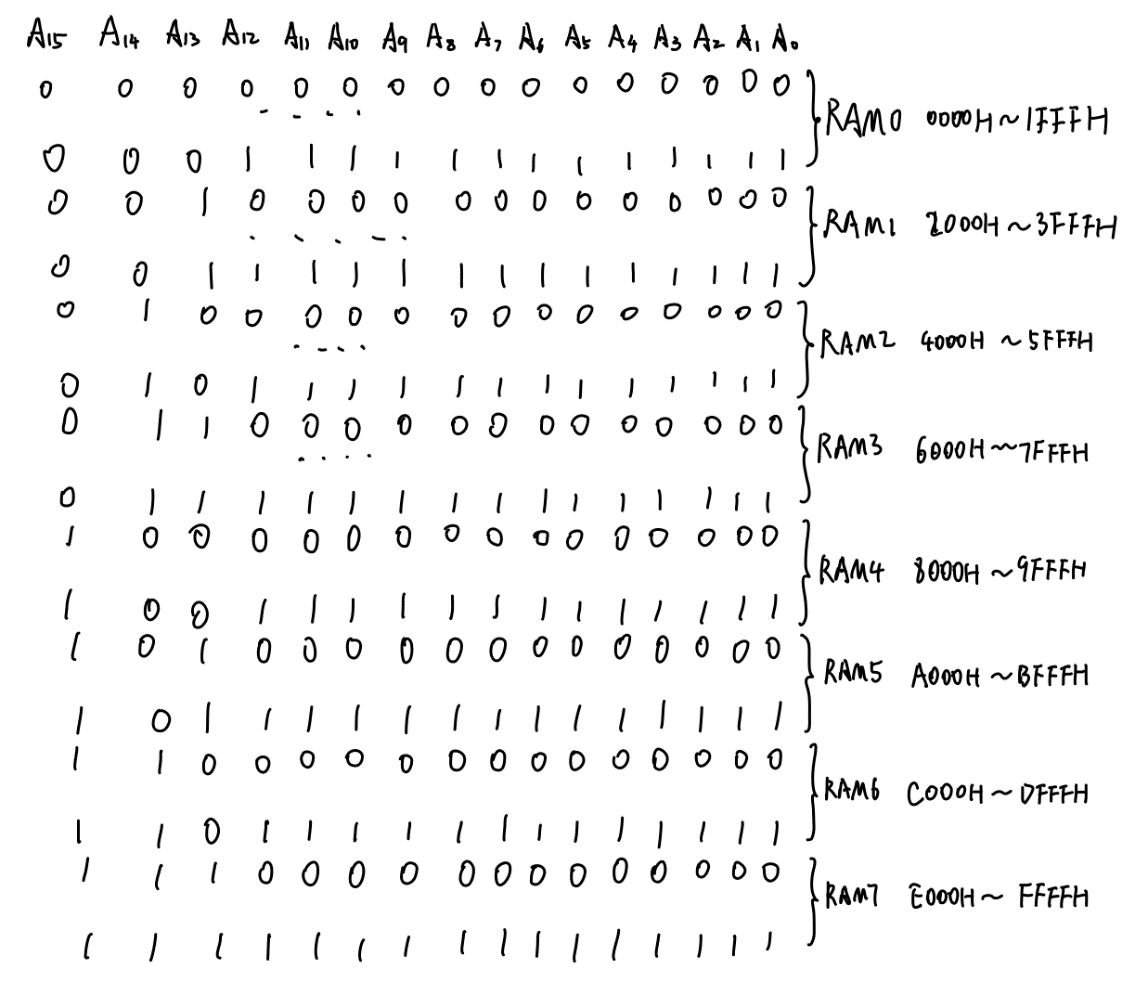 A15 A14 A13 A12 A11 A10 A9 A8 A7 A6 A5 A4 A3 A2 A1 A0
0 0 0 0 0 0 0 0 0 0 0 0 0 0 0 0
RAM0 0000H~1FFFH
0 0 0 1 1 1 1 1 1 1 1 1 1 1 1 1
0 0 1 0 0 0 0 0 0 0 0 0 0 0 0 0
RAM1 2000H~3FFFH
0 0 1 1 1 1 1 1 1 1 1 1 1 1 1 1
0 1 0 0 0 0 0 0 0 0 0 0 0 0 0 0
RAM2 4000H~5FFFH
0 1 0 1 1 1 1 1 1 1 1 1 1 1 1 1
0 1 1 0 0 0 0 0 0 0 0 0 0 0 0 0
RAM3 6000H~7FFFH
0 1 1 1 1 1 1 1 1 1 1 1 1 1 1 1
1 0 0 0 0 0 0 0 0 0 0 0 0 0 0 0
RAM4 8000H~9FFFH
1 0 0 1 1 1 1 1 1 1 1 1 1 1 1 1
1 0 1 0 0 0 0 0 0 0 0 0 0 0 0 0
RAM5 A000H~BFFFH
1 0 1 1 1 1 1 1 1 1 1 1 1 1 1 1
1 1 0 0 0 0 0 0 0 0 0 0 0 0 0 0
RAM6 C000H~DFFFH
1 1 0 1 1 1 1 1 1 1 1 1 1 1 1 1
1 1 1 0 0 0 0 0 0 0 0 0 0 0 0 0
RAM7 E000H~FFFFH
1 1 1 1 1 1 1 1 1 1 1 1 1 1 1 1